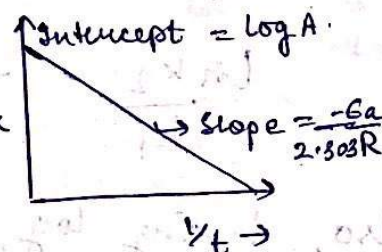 Intercept = log A.
Slope = -Ea
2.303R
1/t →